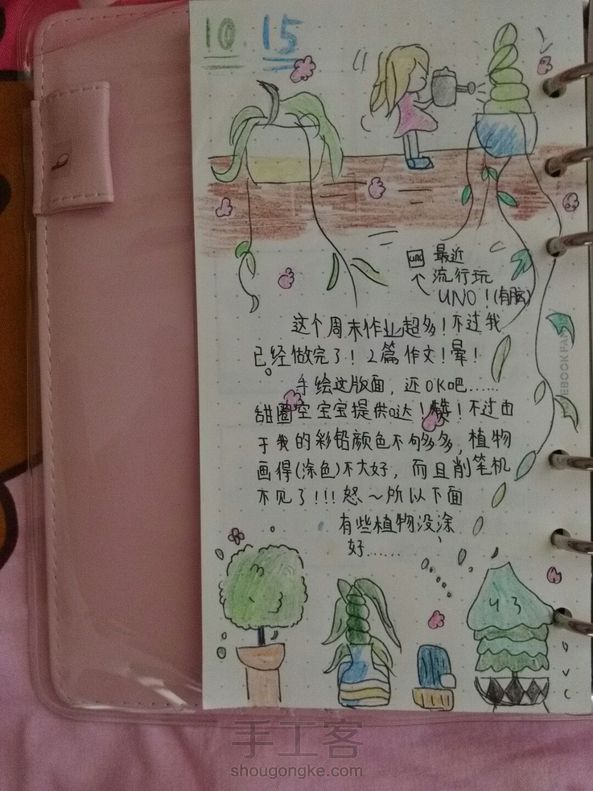 10.15
UNO 最近
流行玩
UNO！(有脑)
这个周末作业超多！不过我
已经做完了！2篇作文！晕！
手绘这版面，还OK吧……
甜圈空宝宝提供哒！赞！不过由
于我的彩铅颜色不句多多，植物
画得(涂色)不大好，而且削笔机
不见了!!!怒～所以下面
有些植物没涂
好……
手工客
shougongke.com